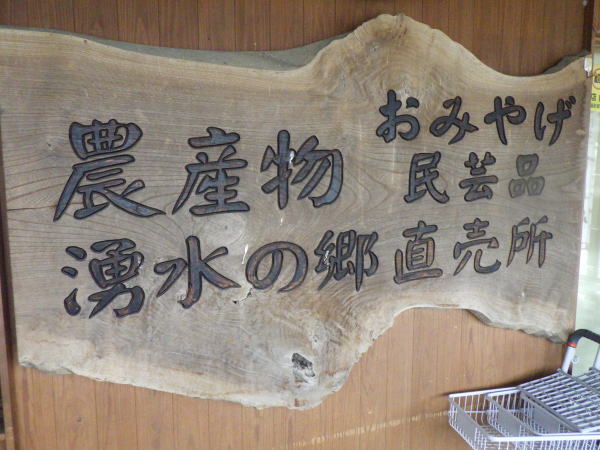 農産物
おみやげ
民芸品
湧水の郷直売所